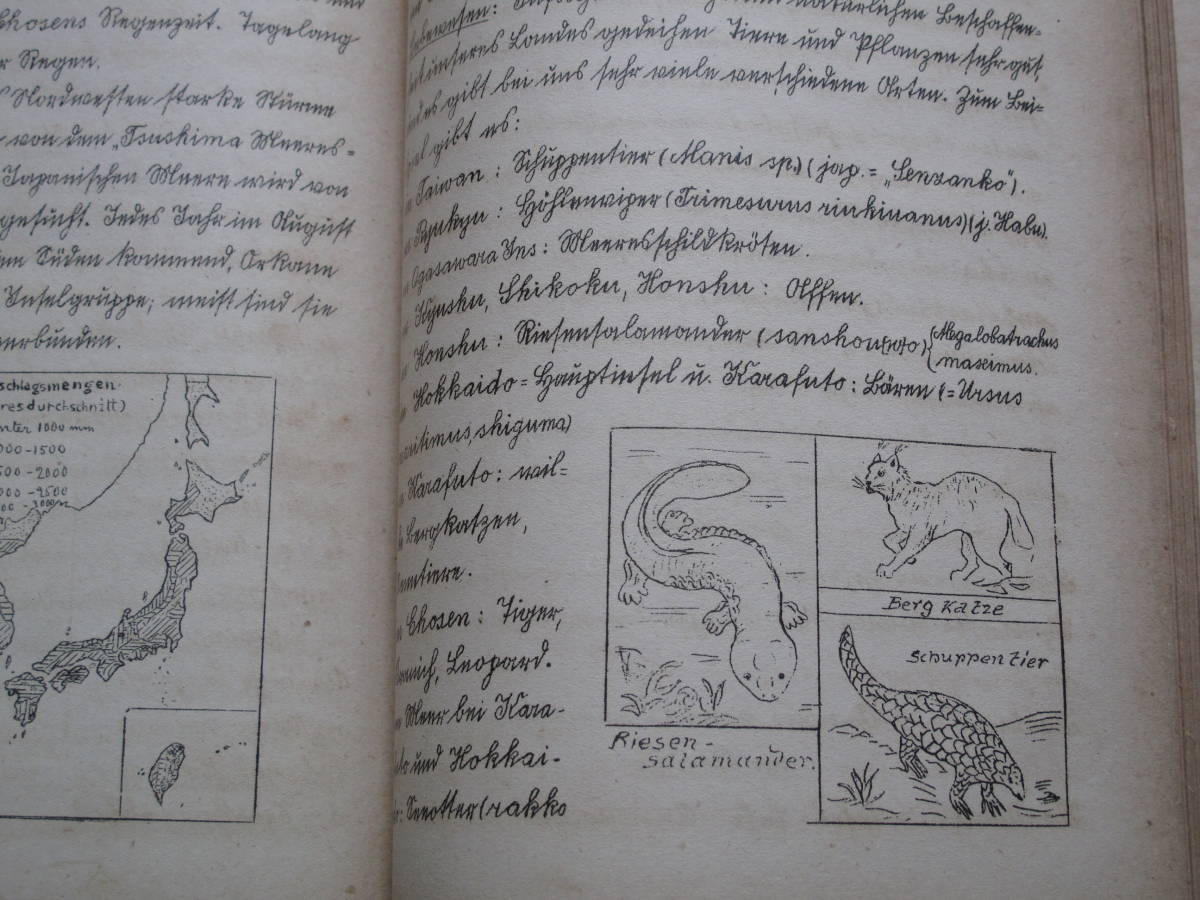 und
Chosens Regenzeit. Tagelang
Regen.
Nordwesten starke Stürme
von dem „Tsushima Meeres=
Japanischen Meere wird von
gesucht. Jedes Jahr im August
Süden kommend, Orkane
Inselgruppe; meist sind sie
verbunden.
schlagsmengen
resdurchschnitt)
unter 1000 mm
000-1500
500-2000
000-2500
natürlichen Beschaffen-
Lebewesen:
unseres Landes gedeihen Tiere und Pflanzen sehr gut,
es gibt bei uns sehr viele verschiedene Arten. Zum Bei=
spiel gibt es:
Taiwan: Schuppentier (Manis sp.) (jap. = „Senzankô“).
Ryukyu: Höhlenviper (Trimesurus riukiuanus) (j. Habu).
Ogasawara Ins: Meeresschildkröten.
Kyushu, Shikoku, Honshu: Affen.
Honshu: Riesensalamander (sanshouuo) (Megalobatrachus
maximus.
Hokkaido=Hauptinsel u. Karafuto: Bären (=Ursus
maritimus, shiguma)
Karafuto: wil=
de Bergkatzen,
Renntiere.
Chosen: Tiger,
Kranich, Leopard.
Meer bei Kara-
futo und Hokkai-
do: Seeotter (rakko
Berg Katze
Schuppentier
Riesen-
salamander.